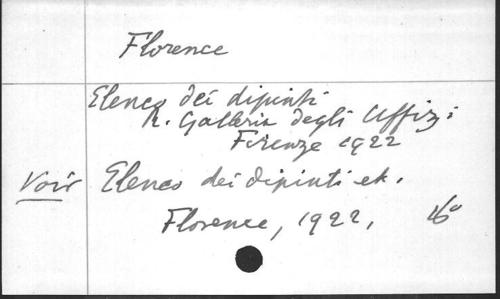 Florence
Elenco dei dipinti
R. Galleria degli Uffizi
Firenze 1922
Voir Elenco dei dipinti etc.
Florence, 1922, 16°